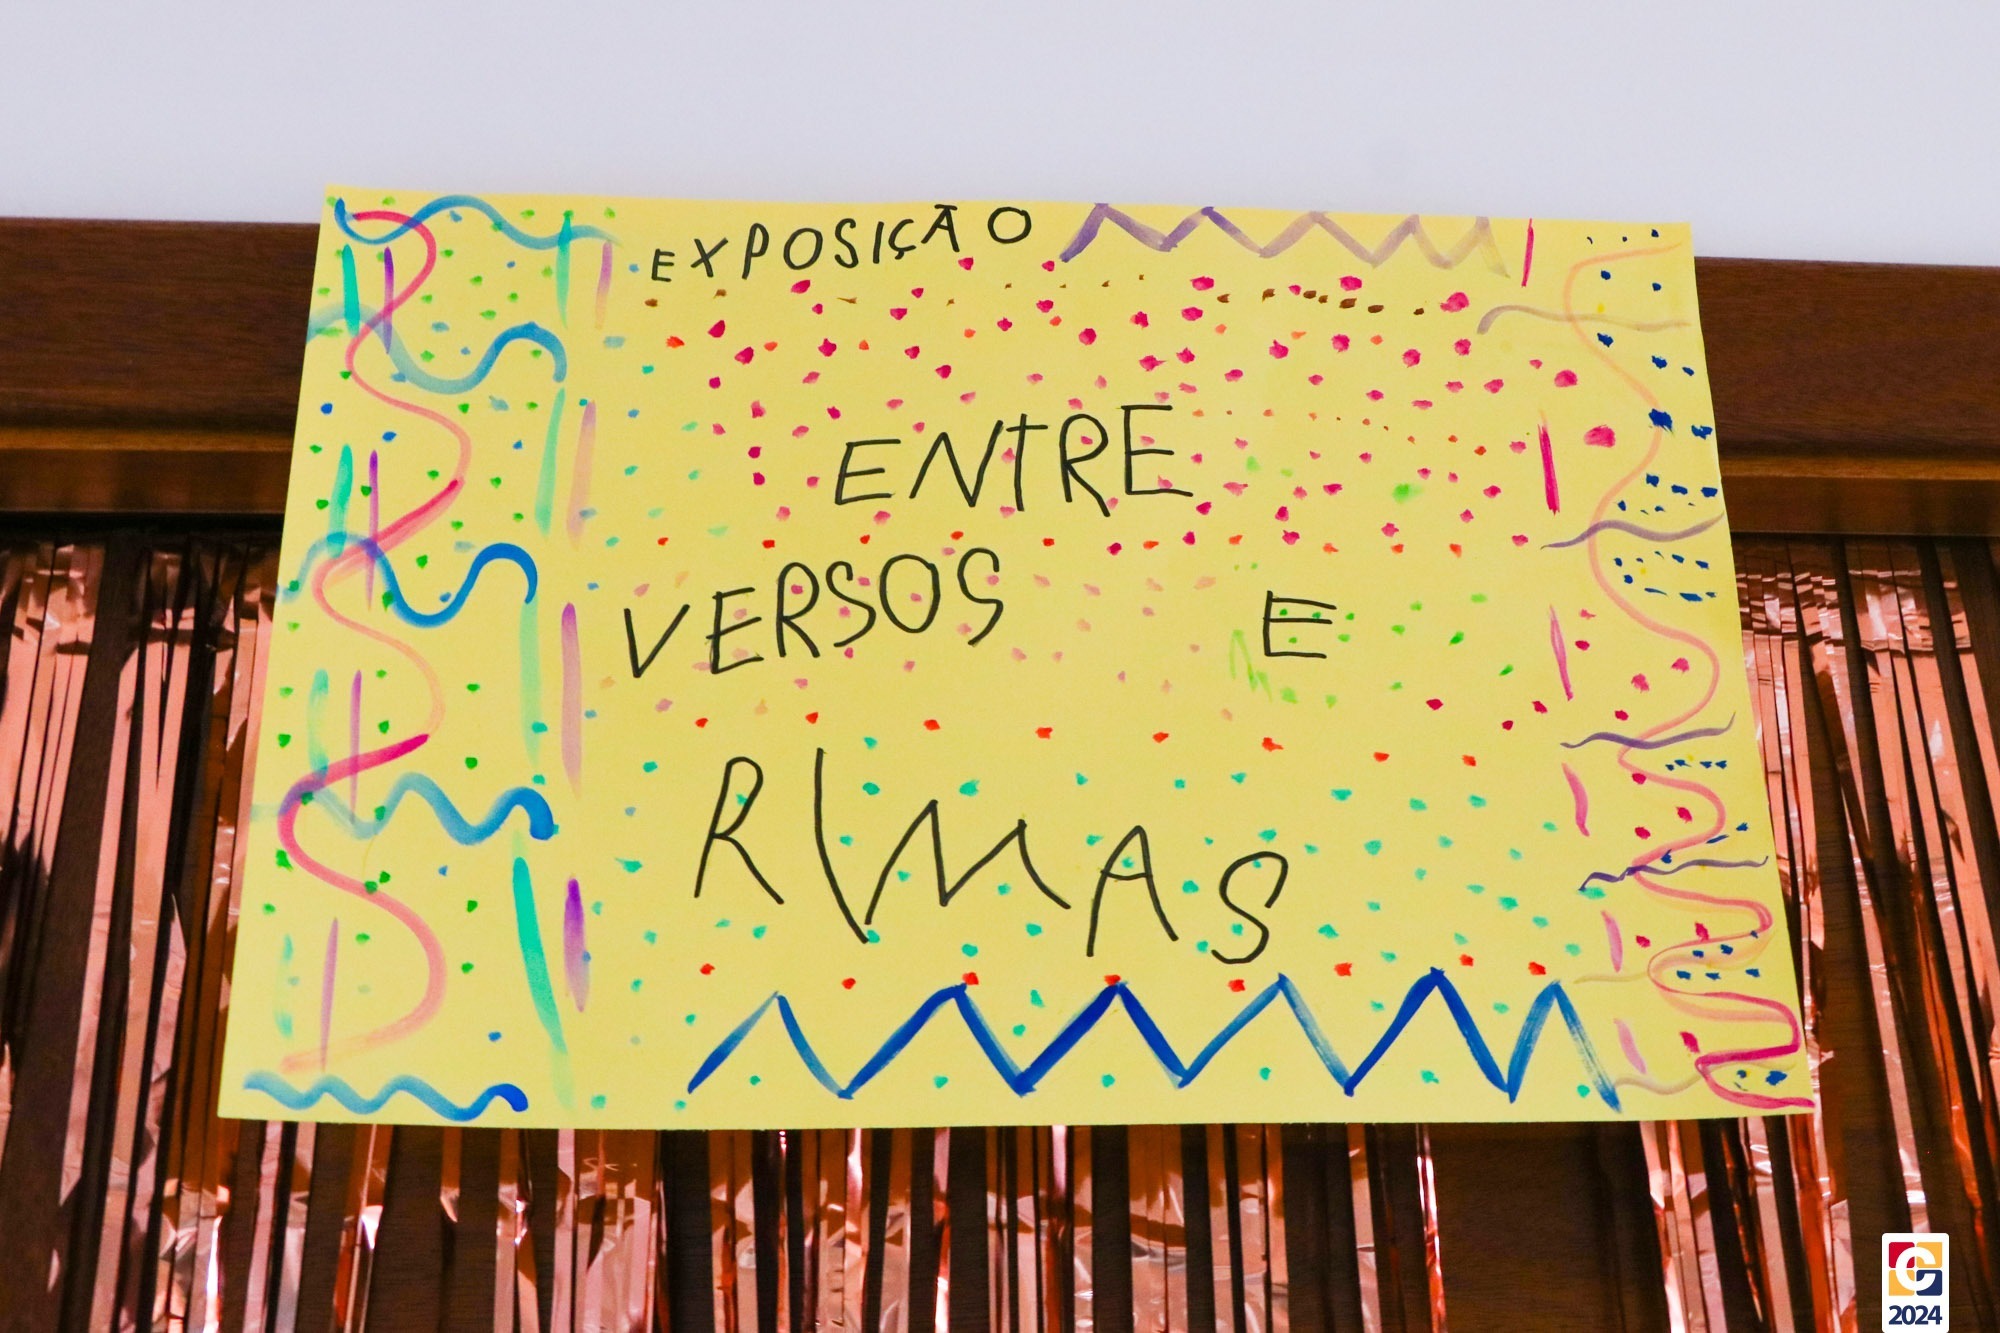 EXPOSIÇÃO
ENTRE
VERSOS E
RIMAS
2024